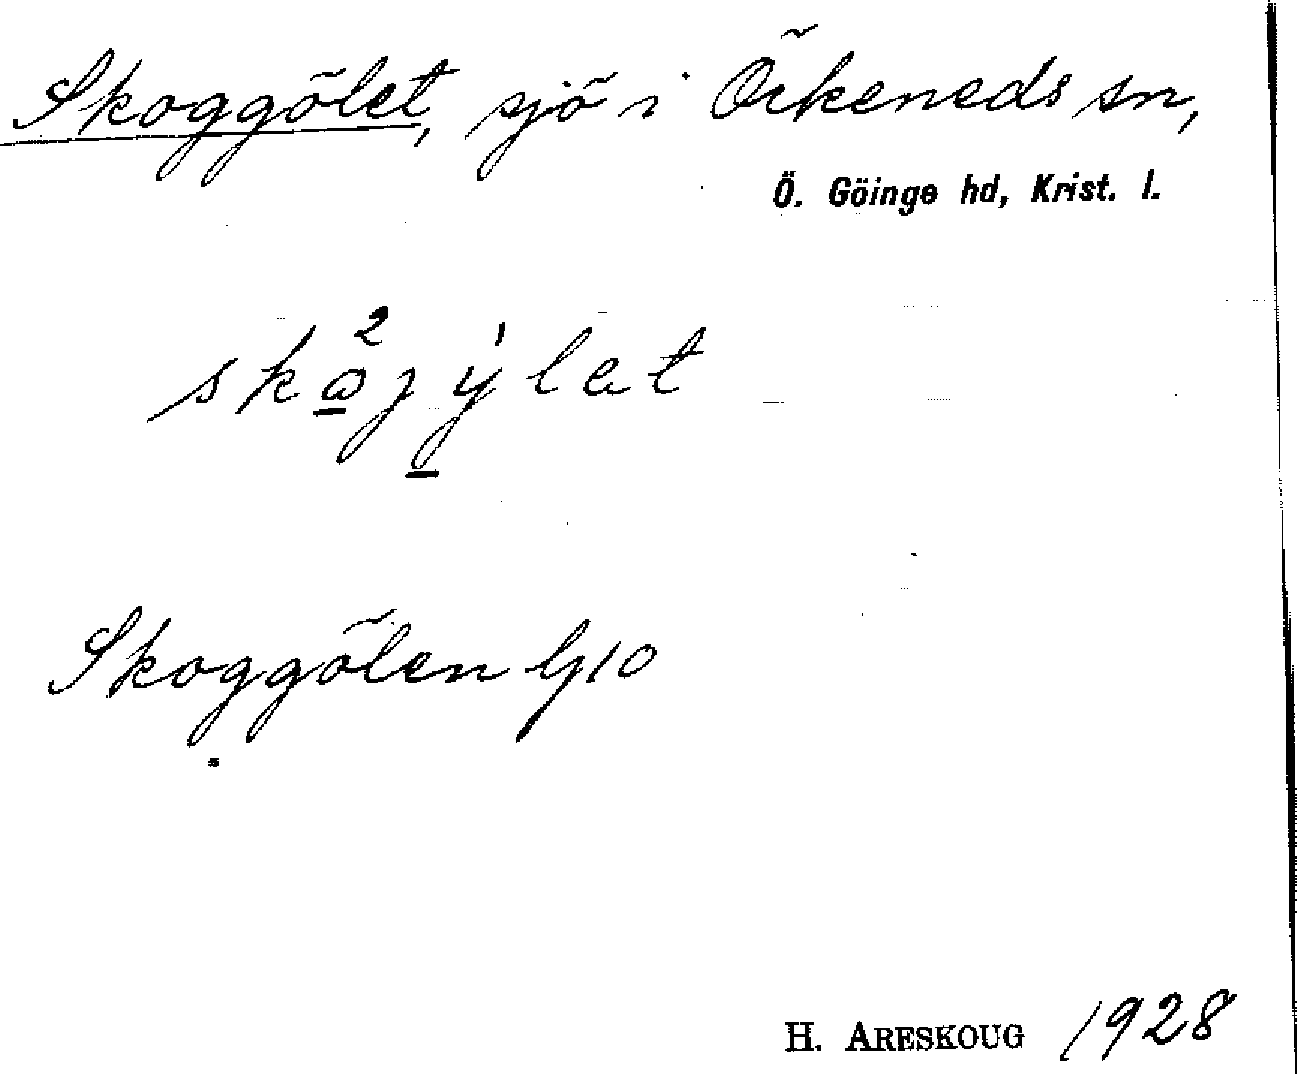 Skoggölet, sjö i Örkeneds sn,
Ö. Göinge hd, Krist. l.
Skoggölen G10
H. ARESKOUG 1928